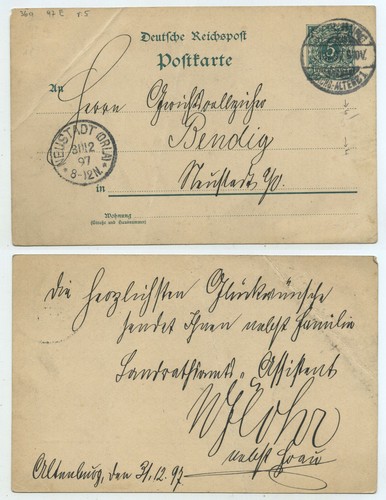 36a 47 E r.5
Deutsche Reichspost
Postkarte
An
Herrn Gerichtsvollzieher
Bendig
in Neustadt a/O.
NEUSTADT (ORLA)
31 12
97
8-12N.
Wohnung
(Straße und Hausnummer)
Die herzlichsten Glückwünsche
sendet Ihnen nebst Familie
Landrathsamts-Assistent
Lohr
nebst Frau
Altenburg, den 31.12.97.